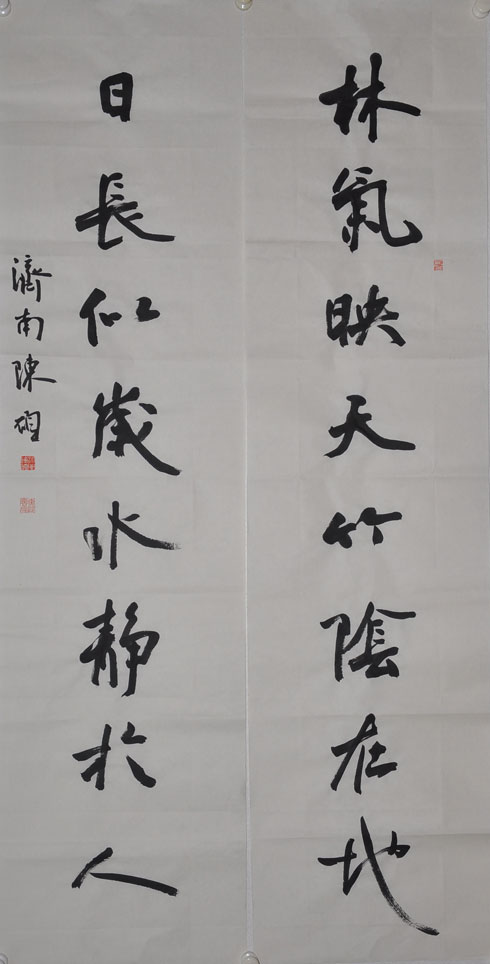 林氣映天竹陰在地
日長似歲水靜於人
濟南陳碩